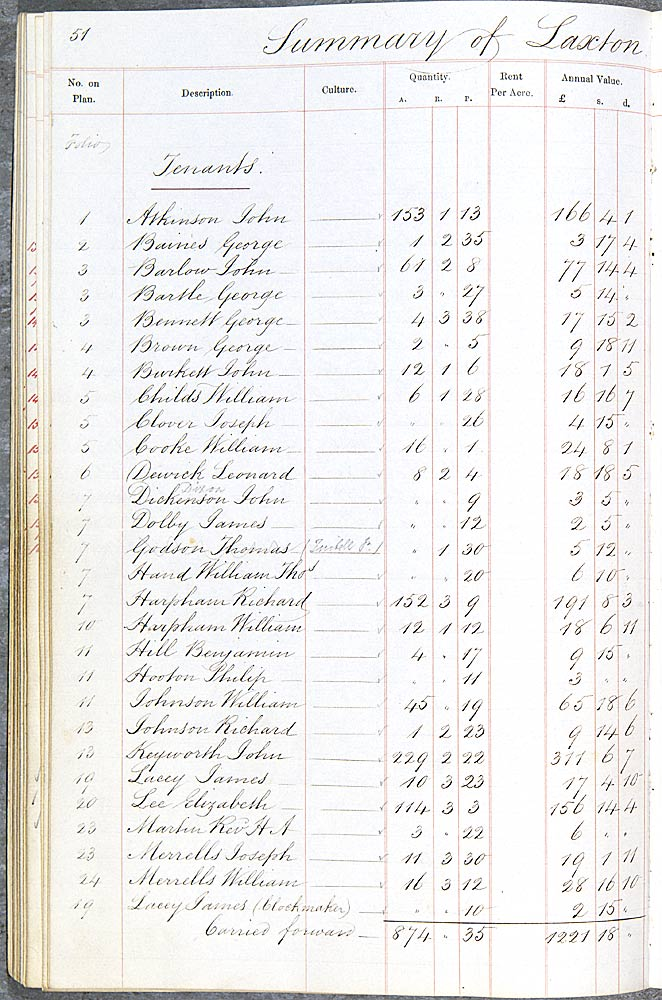 51
Summary of Laxton
No. on Plan. Description. Culture. Quantity. A. R. P. Rent Per Acre. Annual Value. £ s. d.
Folio
Tenants.
1 Atkinson John 153 1 13 166 4 1
2 Baines George 1 2 35 3 17 4
3 Barlow John 61 2 8 77 14 4
3 Bartle George 3 " 27 5 14 "
3 Bennett George 4 3 38 17 15 2
4 Brown George 2 " 5 9 18 11
4 Burkett John 12 1 6 18 1 5
5 Childs William 6 1 28 16 16 7
5 Clover Joseph " " 26 4 15 "
5 Cooke William 16 " 1 24 8 1
6 (Dewick Leonard 8 2 4 18 18 5
Dixon
7 Dickenson John " " 9 3 5 "
7 Dolby James " " 12 2 5 "
7 Godson Thomas " 1 30 5 12 "
7 Hand William Thos " " 20 6 10 "
7 Harpham Richard 152 3 9 191 8 3
10 Harpham William 12 1 12 18 6 11
11 Hill Benjamin 4 " 17 9 15 "
11 Hooton Philip " " 11 3 " "
11 Johnson William 45 " 19 65 18 6
13 Johnson Richard 1 2 23 9 14 6
13 Keyworth John 229 2 22 311 6 7
19 Lacey James 10 3 23 17 4 10
20 Lee Elizabeth 114 3 3 156 14 4
23 Martin Rev H A 3 " 22 6 " "
23 Merrells Joseph 11 3 30 19 1 11
24 Merrells William 16 3 12 28 16 10
19 Lacey James (Clockmaker) " " 10 2 15 "
Carried forward 874 " 35 1221 18 "